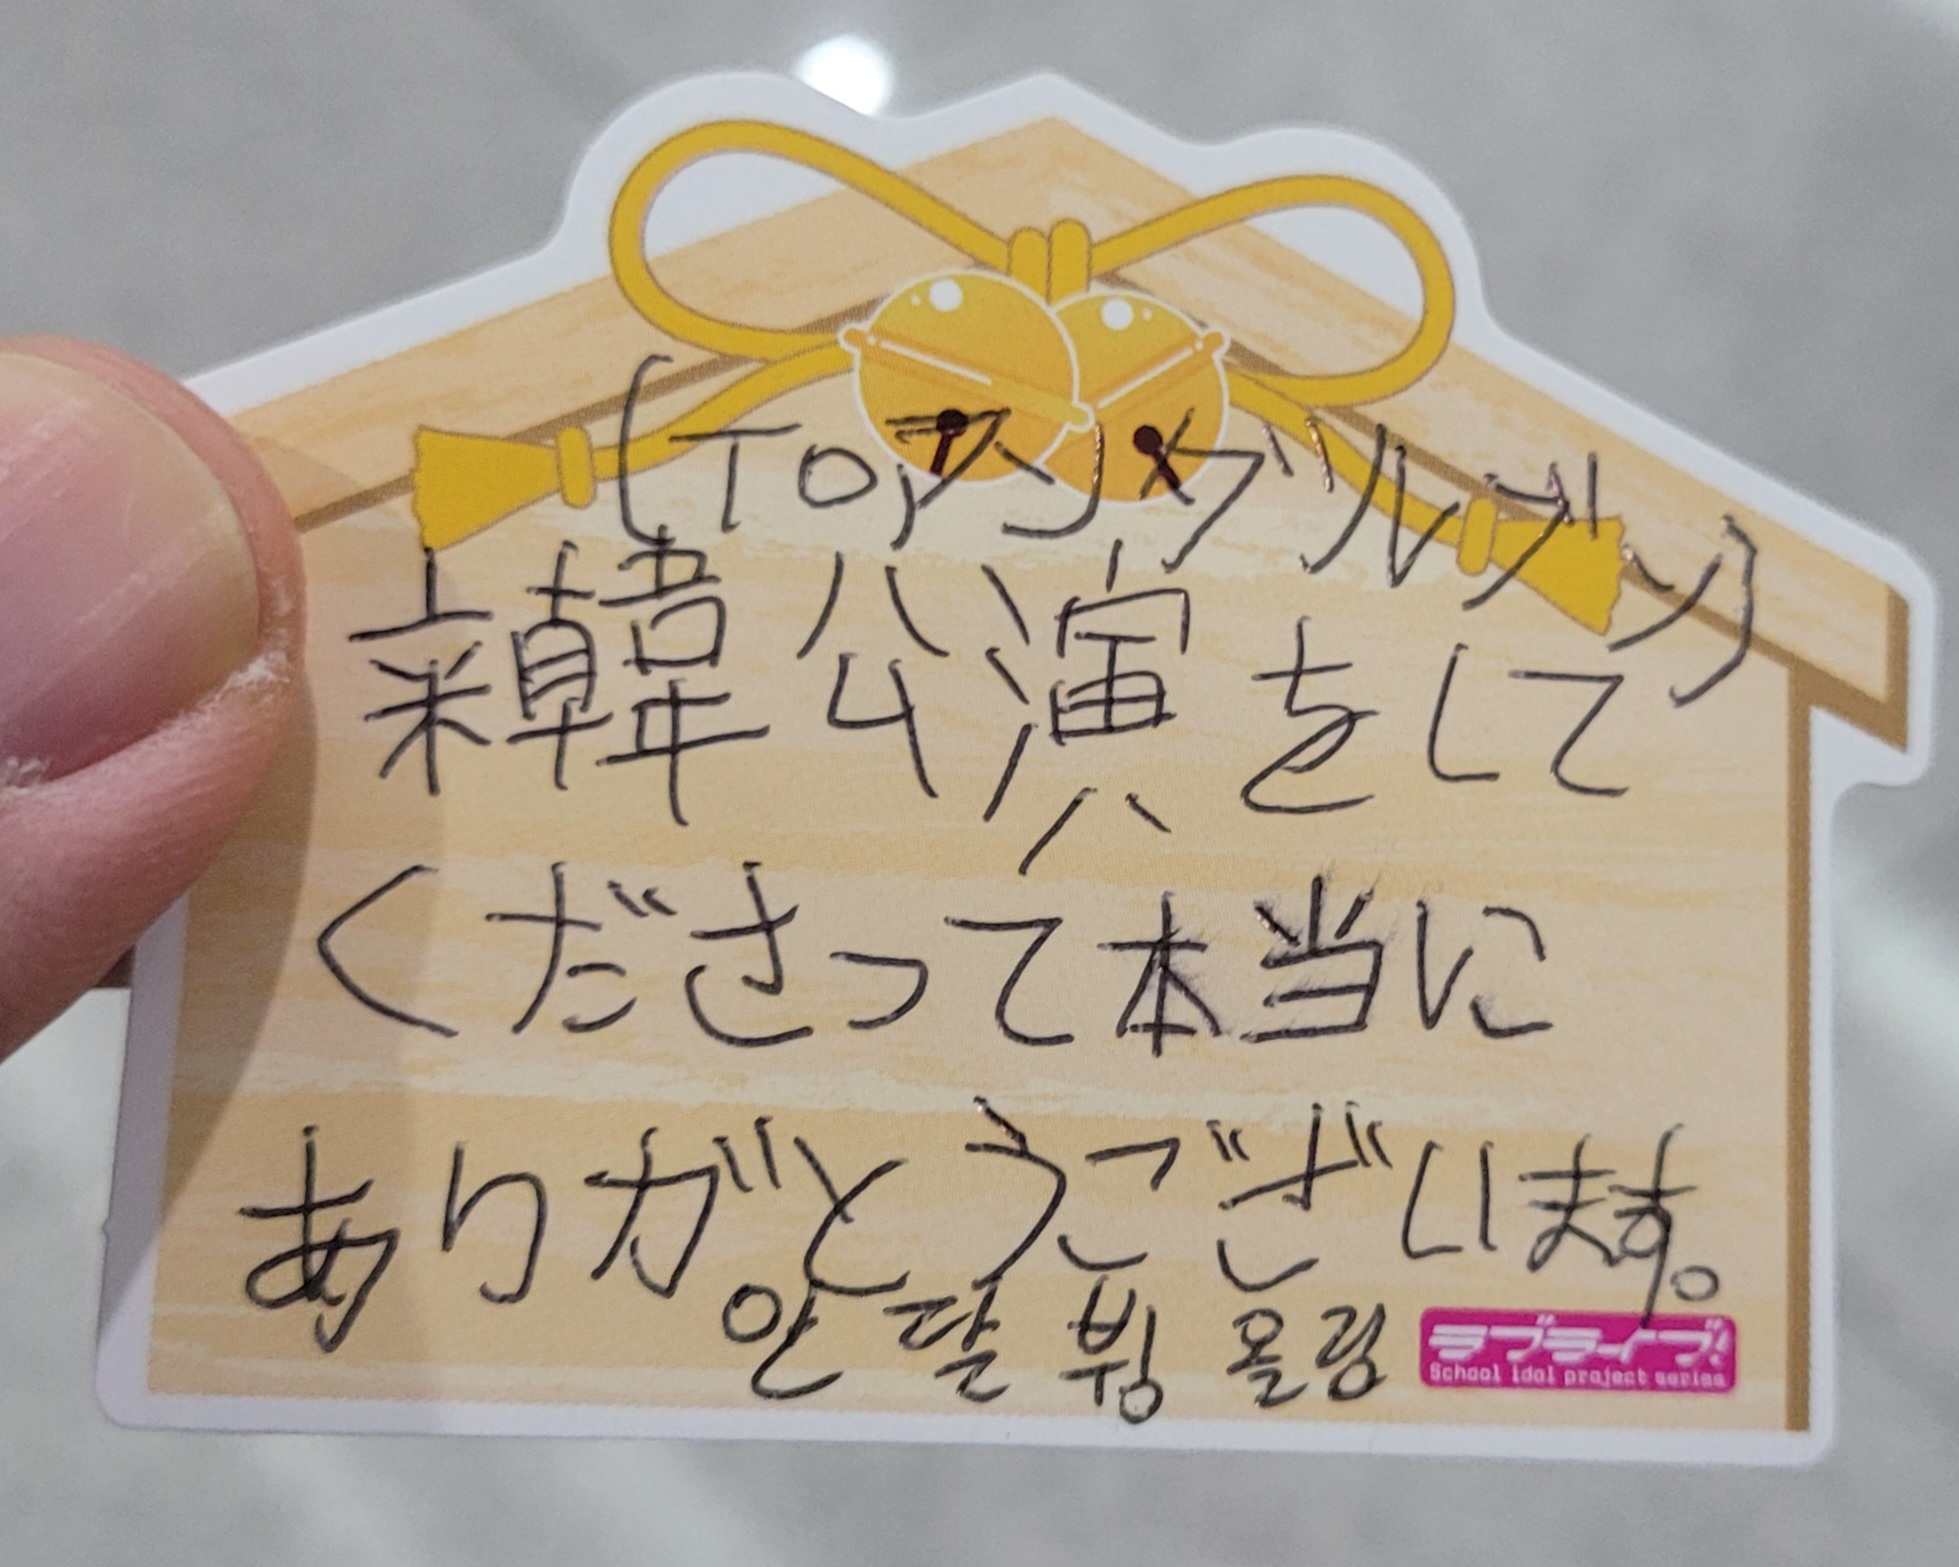 (To, アンダルブン)
来韓公演をして
くださって本当に
ありがとうございます。
안달붱 올림
ラブライブ!
School idol project series